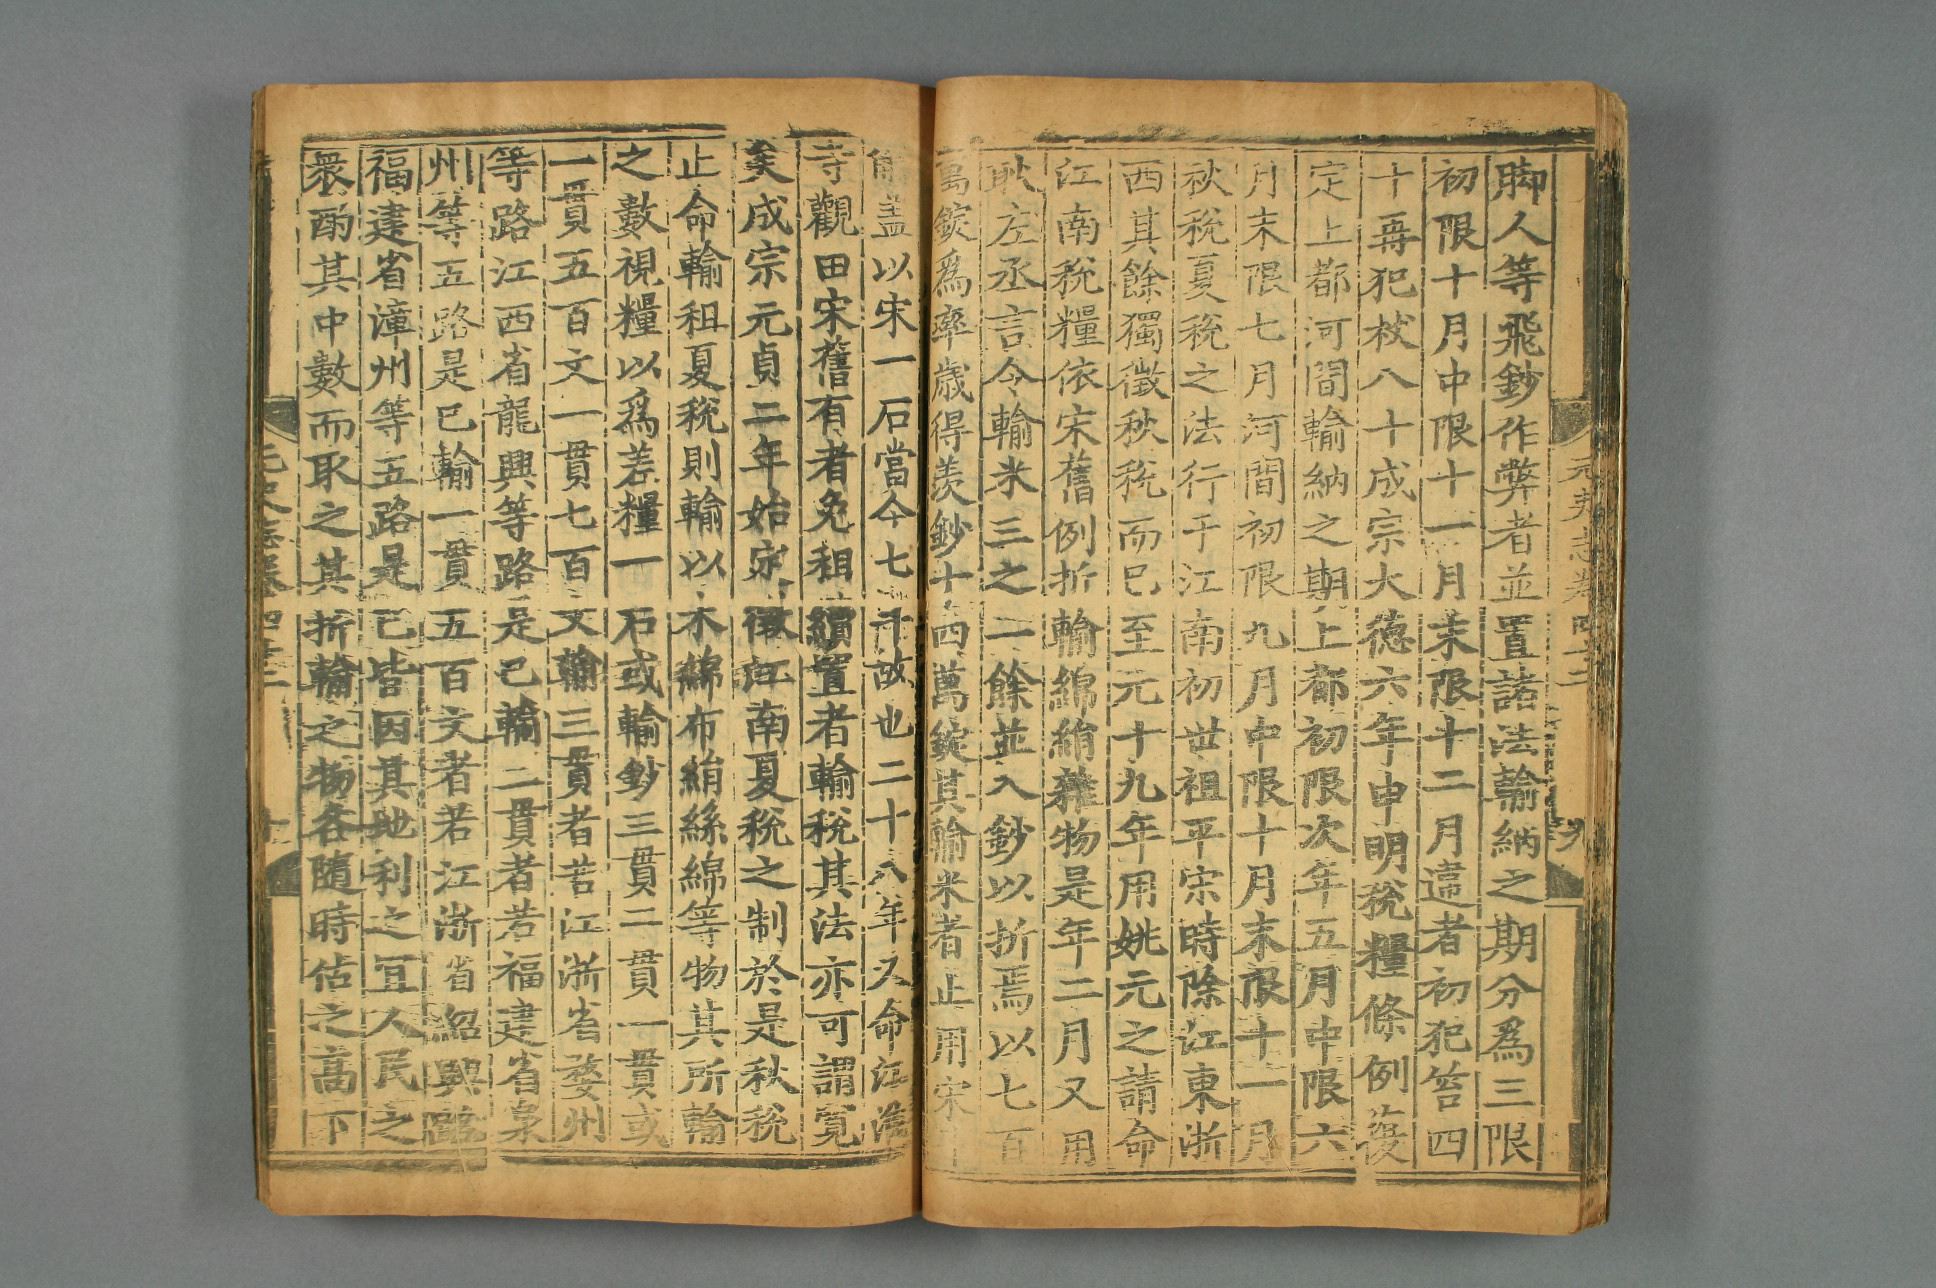 脚人等飛鈔作弊者並置諸法輸納之期分爲三限
初限十月中限十一月末限十二月違者初犯笞四
十再犯杖八十成宗大德六年申明稅糧條例復
定上都河間輸納之期上都初限次年五月中限六
月末限七月河間初限九月中限十月末限十一月
秋稅夏稅之法行于江南初世祖平宋時除江東浙
西其餘獨徵秋稅而已至元十九年用姚元之請命
江南稅糧依宋舊例折輸綿絹雜物是年二月又用
耿左丞言令輸米三之一餘並入鈔以折焉以七百
萬錠爲率歲得羨鈔十四萬錠其輸米者止用宋
斛盖以宋一石當今七斗故也二十八年又命江淮
寺觀田宋舊有者免租續置者輸稅其法亦可謂寬
矣成宗元貞二年始定徵江南夏稅之制於是秋稅
止命輸租夏稅則輸以木綿布絹絲綿等物其所輸
之數視糧以爲差糧一石或輸鈔三貫二貫一貫或
一貫五百文一貫七百文輸三貫者若江浙省婺州
等路江西省龍興等路是已輸二貫者若福建省泉
州等五路是已輸一貫五百文者若江浙省紹興路
福建省漳州等五路是已皆因其地利之宜人民之
衆酌其中數而取之其折輸之物各隨時估之高下